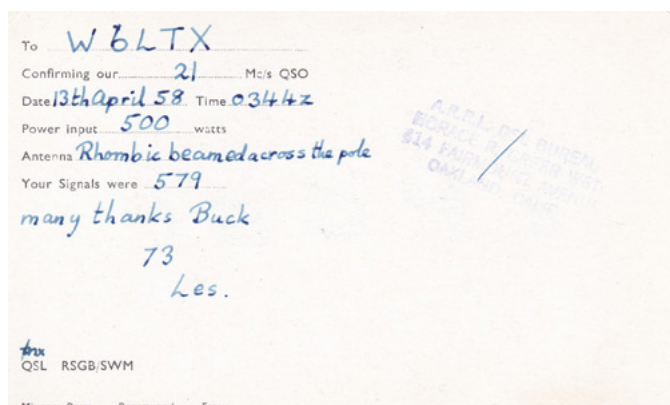 To W6LTX
Confirming our 21 Mc/s QSO
Date 13th April 58 Time 0344z
Power input 500 watts
Antenna Rhombic beamed across the pole
Your Signals were 579
many thanks Buck
73
Les.
tnx
QSL RSGB/SWM
A.R.R.L. QSL BUREAU,
HORACE R. GREER W6TI
414 FAIRMOUNT AVENUE
OAKLAND, CALIF.